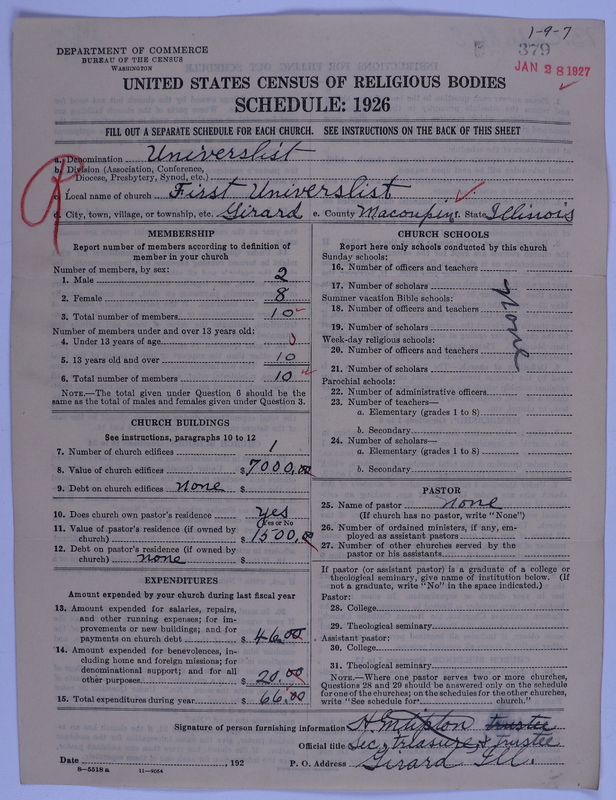 1-9-7
379
JAN 28 1927
DEPARTMENT OF COMMERCE
BUREAU OF THE CENSUS
WASHINGTON
UNITED STATES CENSUS OF RELIGIOUS BODIES
SCHEDULE: 1926
FILL OUT A SEPARATE SCHEDULE FOR EACH CHURCH. SEE INSTRUCTIONS ON THE BACK OF THIS SHEET
a. Denomination Universlist
b. Division (Association, Conference, Diocese, Presbytery, Synod, etc.)
c. Local name of church First Universlist
d. City, town, village, or township, etc. Girard e. County Macoupin f. State Illinois
MEMBERSHIP
Report number of members according to definition of member in your church
Number of members, by sex:
1. Male 2
2. Female 8
3. Total number of members 10
Number of members under and over 13 years old:
4. Under 13 years of age 0
5. 13 years old and over 10
6. Total number of members 10
NOTE.—The total given under Question 6 should be the same as the total of males and females given under Question 3.
CHURCH BUILDINGS
See instructions, paragraphs 10 to 12
7. Number of church edifices 1
8. Value of church edifices $7000,00
9. Debt on church edifices none $
10. Does church own pastor's residence yes
(Yes or No)
11. Value of pastor's residence (if owned by church) $1500,00
12. Debt on pastor's residence (if owned by church) none $
EXPENDITURES
Amount expended by your church during last fiscal year
13. Amount expended for salaries, repairs, and other running expenses; for improvements or new buildings; and for payments on church debt $46.00
14. Amount expended for benevolences, including home and foreign missions; for denominational support; and for all other purposes $20.00
15. Total expenditures during year $66,00
CHURCH SCHOOLS
Report here only schools conducted by this church
Sunday schools:
16. Number of officers and teachers
17. Number of scholars
Summer vacation Bible schools:
18. Number of officers and teachers
19. Number of scholars
Week-day religious schools:
20. Number of officers and teachers
21. Number of scholars
none
Parochial schools:
22. Number of administrative officers
23. Number of teachers—
a. Elementary (grades 1 to 8)
b. Secondary
24. Number of scholars—
a. Elementary (grades 1 to 8)
b. Secondary
PASTOR
25. Name of pastor none
(If church has no pastor, write "None")
26. Number of ordained ministers, if any, employed as assistant pastors
27. Number of other churches served by the pastor or his assistants
If pastor (or assistant pastor) is a graduate of a college or theological seminary, give name of institution below. (If not a graduate, write "No" in the space indicated.)
Pastor:
28. College
29. Theological seminary
Assistant pastor:
30. College
31. Theological seminary
NOTE.—Where one pastor serves two or more churches, Questions 28 and 29 should be answered only on the schedule for one of the churches; on the schedules for the other churches, write "See schedule for church."
Signature of person furnishing information H. M. Tipton trustee
Official title Sec, & treasure & trustee
Date , 192 P. O. Address Girard Ill.
8—5518 a 11—9054